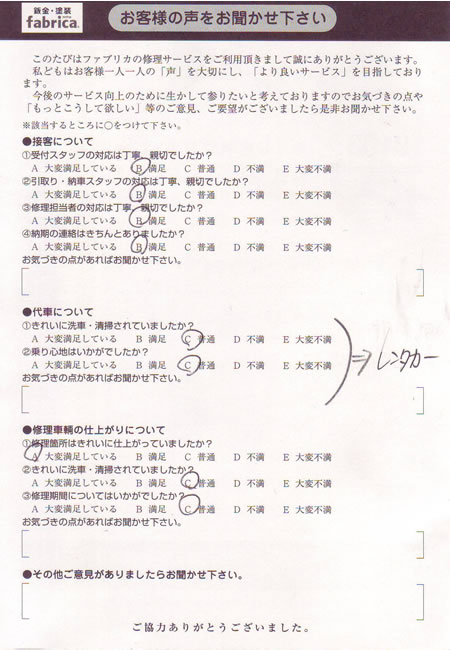 鈑金・塗装
fabrica.
お客様の声をお聞かせ下さい
このたびはファブリカの修理サービスをご利用頂きまして誠にありがとうございます。
私どもはお客様一人一人の「声」を大切にし、「より良いサービス」を目指しております。
今後のサービス向上のために生かして参りたいと考えておりますのでお気づきの点や
「もっとこうして欲しい」等のご意見、ご要望がございましたら是非お聞かせ下さい。
※該当するところに○をつけて下さい。
●接客について
①受付スタッフの対応は丁寧、親切でしたか？
A 大変満足している B 満足 C 普通 D 不満 E 大変不満
②引取り・納車スタッフの対応は丁寧、親切でしたか？
A 大変満足している B 満足 C 普通 D 不満 E 大変不満
③修理担当者の対応は丁寧、親切でしたか？
A 大変満足している B 満足 C 普通 D 不満 E 大変不満
④納期の連絡はきちんとありましたか？
A 大変満足している B 満足 C 普通 D 不満 E 大変不満
お気づきの点があればお聞かせ下さい。
●代車について
①きれいに洗車・清掃されていましたか？
A 大変満足している B 満足 C 普通 D 不満 E 大変不満
②乗り心地はいかがでしたか？
A 大変満足している B 満足 C 普通 D 不満 E 大変不満
⇒レンタカー
お気づきの点があればお聞かせ下さい。
●修理車輌の仕上がりについて
①修理箇所はきれいに仕上がっていましたか？
A 大変満足している B 満足 C 普通 D 不満 E 大変不満
②きれいに洗車・清掃されていましたか？
A 大変満足している B 満足 C 普通 D 不満 E 大変不満
③修理期間についてはいかがでしたか？
A 大変満足している B 満足 C 普通 D 不満 E 大変不満
お気づきの点があればお聞かせ下さい。
●その他ご意見がありましたらお聞かせ下さい。
ご協力ありがとうございました。